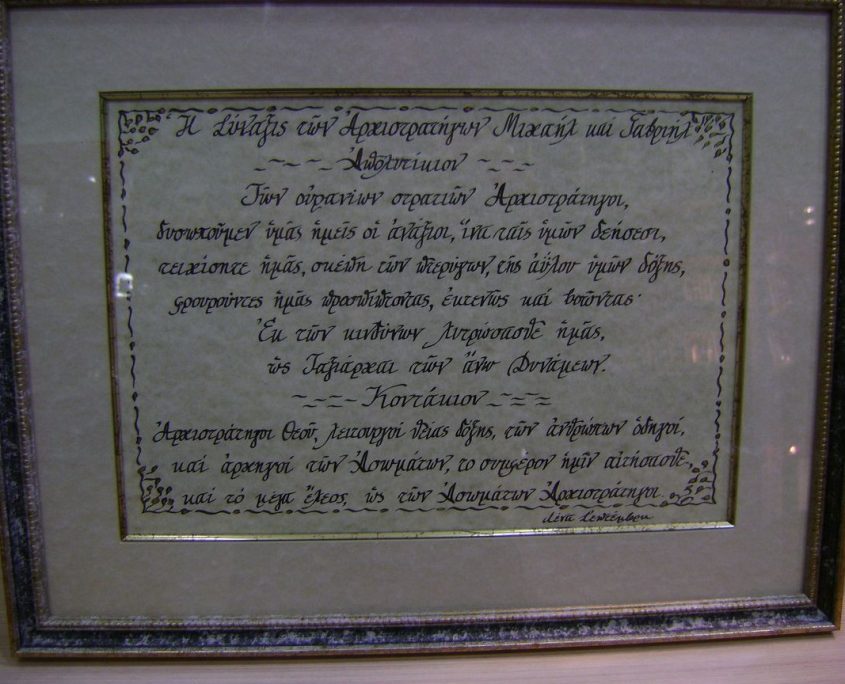 Ἡ Σύναξις τῶν Ἀρχιστρατήγων Μιχαήλ καί Γαβριήλ
Ἀπολυτίκιον
Τῶν οὐρανίων στρατιῶν Ἀρχιστράτηγοι,
δυσωποῦμεν ὑμᾶς ἡμεῖς οἱ ἀνάξιοι, ἵνα ταῖς ὑμῶν δεήσεσι,
τειχίσητε ἡμᾶς, σκέπῃ τῶν πτερύγων, τῆς ἀΰλου ὑμῶν δόξης,
φρουροῦντες ἡμᾶς προσπίπτοντας, ἐκτενῶς καί βοῶντας·
Ἐκ τῶν κινδύνων λυτρώσασθε ἡμᾶς,
ὡς Ταξιάρχαι τῶν ἄνω Δυνάμεων.
Κοντάκιον
Ἀρχιστράτηγοι Θεοῦ, λειτουργοί θείας δόξης, τῶν ἀνθρώπων ὁδηγοί,
καί ἀρχηγοί τῶν Ἀσωμάτων, το συμφέρον ἡμῖν αἰτήσασθε,
καί τό μέγα ἔλεος, ὡς τῶν Ἀσωμάτων Ἀρχιστράτηγοι.